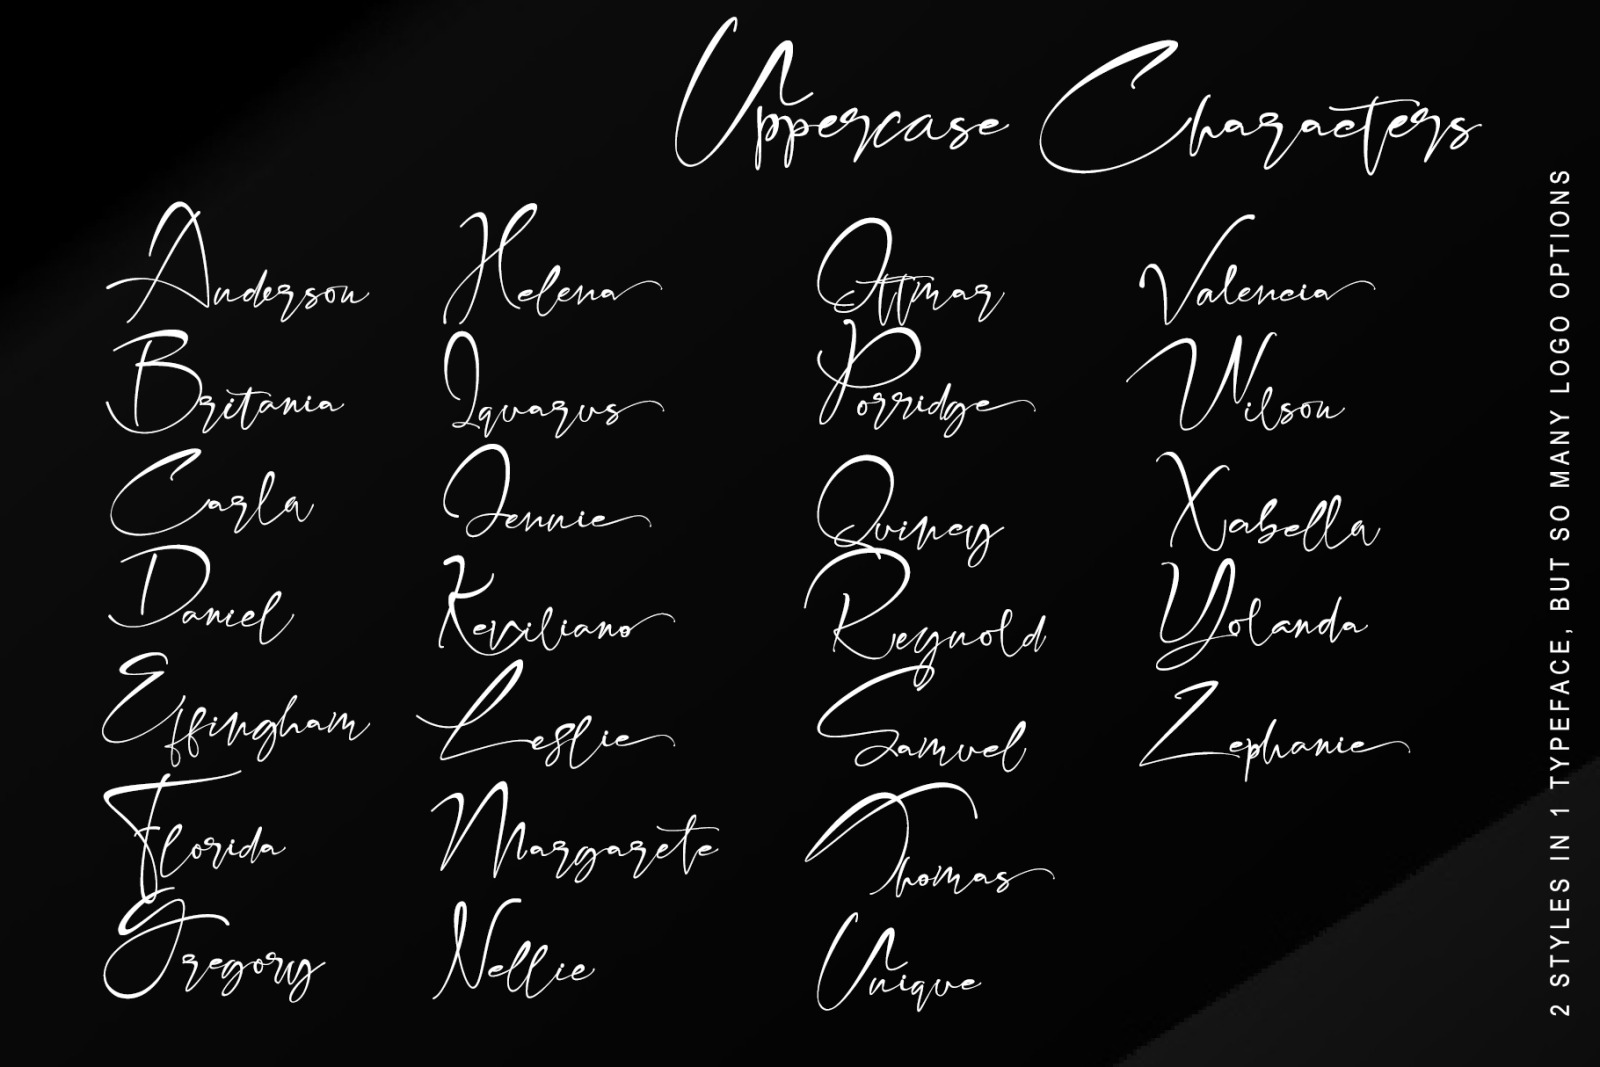 Uppercase Characters
Anderson
Britania
Carla
Daniel
Effingham
Florida
Gregory
Helena
Iquarus
Jennie
Keviliano
Leslie
Margarete
Nellie
Ottmar
Porridge
Quincy
Reynold
Samuel
Thomas
Unique
Valencia
Wilson
Xabella
Yolanda
Zephanie
2 STYLES IN 1 TYPEFACE, BUT SO MANY LOGO OPTIONS